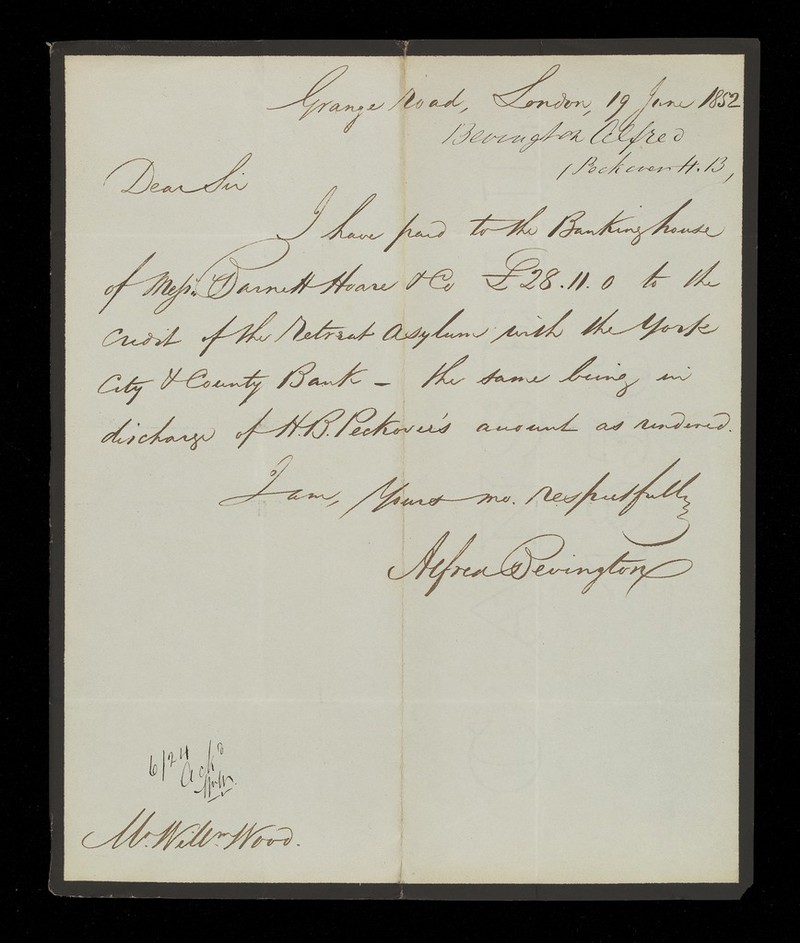 Grange Road, London, 19 June 1852
Bevington Alfred
(Peckover H. B,
Dear Sir
I have paid to the Banking house
of Messrs. Barnett Hoare & Co £28.11.0 to the
credit of the Retreat Asylum with the York
City & County Bank – the same being in
discharge of H.B. Peckover's account as rendered.
I am, Yours mo. respectfully
Alfred Bevington
6/24
Ackd
WW.
Mr. Willm. Wood.